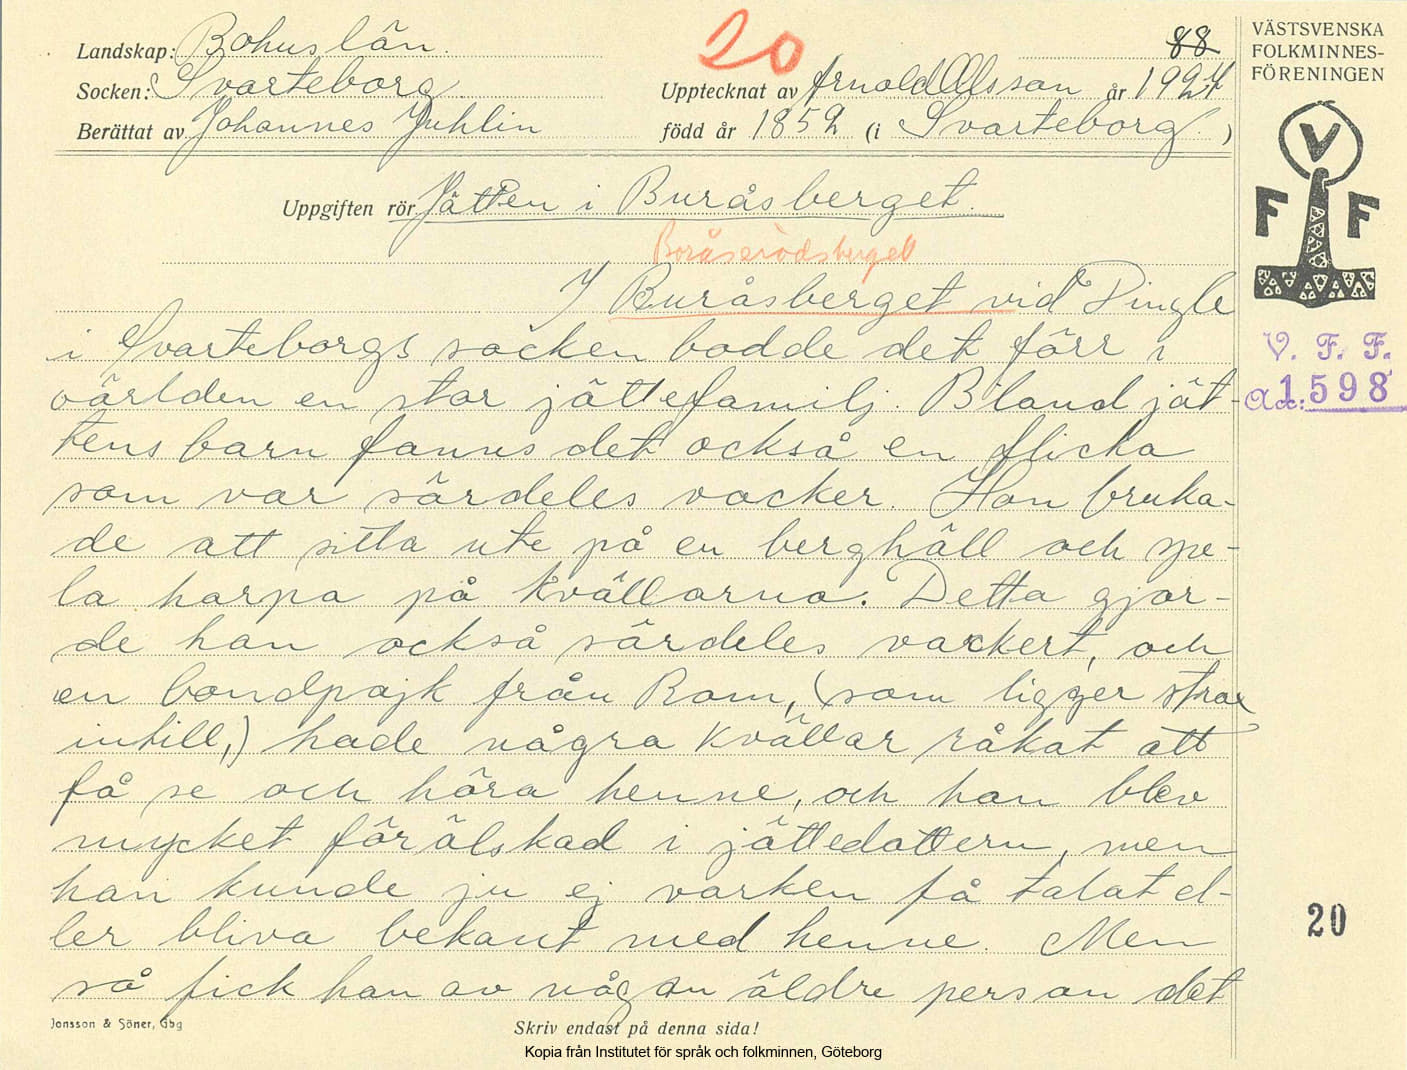 Landskap: Bohuslän.
20
88
VÄSTSVENSKA
FOLKMINNES-
FÖRENINGEN
Socken: Svarteborg.
Upptecknat av Arnold Olsson år 1927
Berättat av Johannes Juhlin
född år 1852 (i Svarteborg.)
V
F F
Uppgiften rör Jätten i Buråsberget.
Boråserödsberget
I Buråsberget vid Dingle
i Svarteborgs socken bodde det förr i
världen en stor jättefamilj. Bland jät-
tens barn fanns det också en flicka
som var särdeles vacker. Hon bruka-
de att sitta ute på en berghäll och spe-
la harpa på kvällarna. Detta gjor-
de hon också särdeles vackert, och
en bondpojk från Rom, (som ligger strax
intill,) hade några kvällar råkat att
få se och höra henne, och han blev
mycket förälskad i jättedottern, men
han kunde ju ej varken få talat el-
ler bliva bekant med henne. Men
så fick han av någon äldre person det
V. F. F.
Acc: 1598
20
Jonsson & Söner, Gbg
Skriv endast på denna sida!
Kopia från Institutet för språk och folkminnen, Göteborg